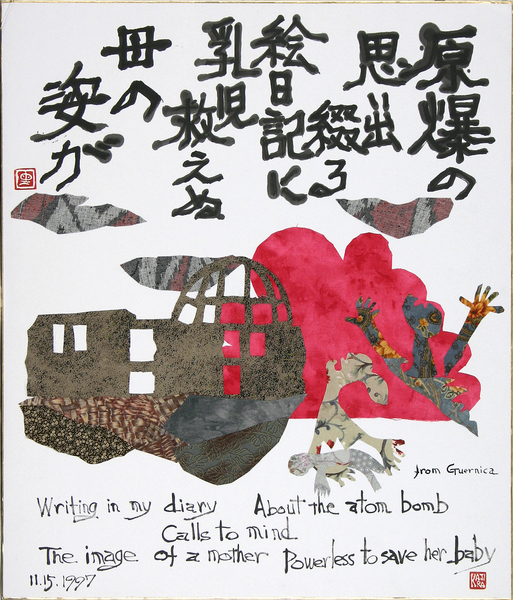 原爆の
思出
綴る
絵日記に
乳児
救えぬ
母の
姿が
from Guernica
Writing in my diary About the atom bomb
Calls to mind
The image of a mother Powerless to save her baby
11.15.1997